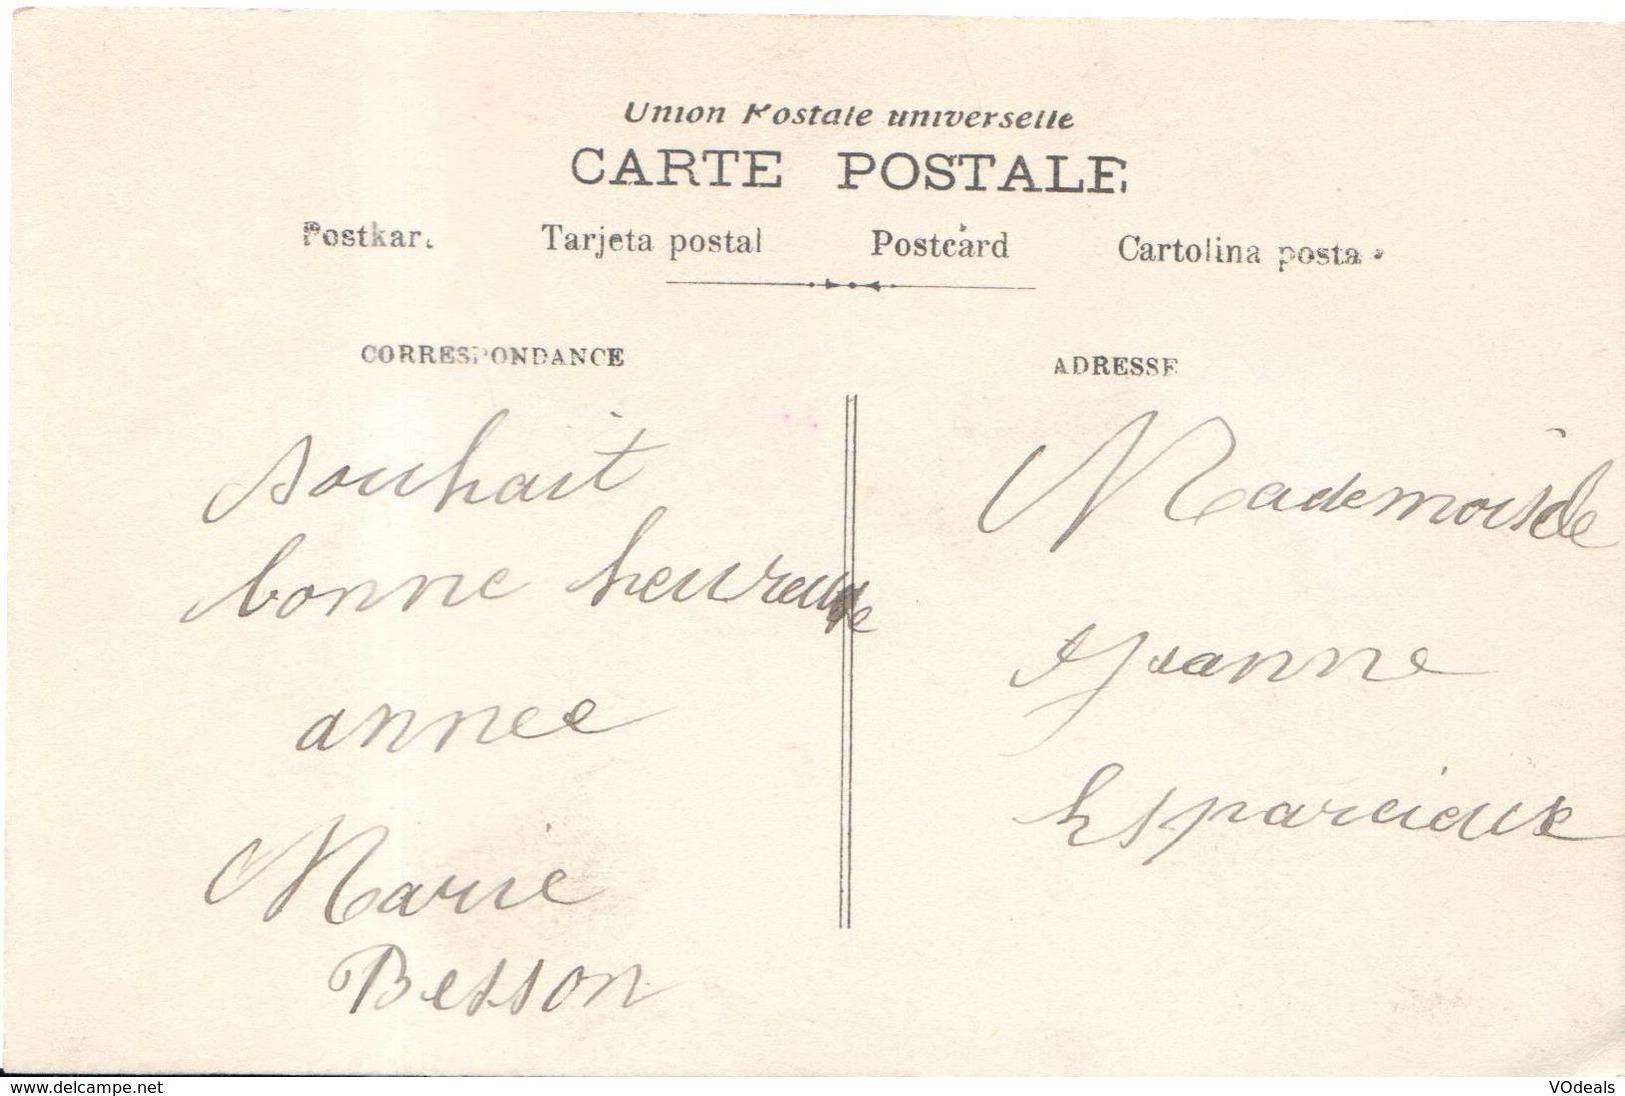 Union Postale universelle
CARTE POSTALE
Postkar. Tarjeta postal Postcard Cartolina posta
CORRESPONDANCE
souhait
bonne heureuse
annee
Marie
Besson
ADRESSE
Mademoisele
Jeanne
Esparcieux
www.delcampe.net
VOdeals